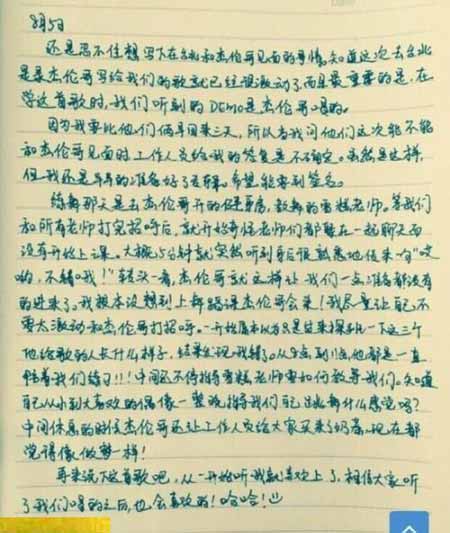 8月5日
还是忍不住想写下在台北和杰伦哥见面的事情。知道这次去台北
是录杰伦哥写给我们的歌就已经很激动了,而且最重要的是,在
学这首歌时,我们听到的DEMO是杰伦哥唱的。
因为我要比他们俩早回来三天,所以当我问他们这次能不能
和杰伦哥见面时工作人员给我的答复是不确定。虽然是这样,
但我还是早早的准备好了专辑。希望能要到签名。
练舞那天是去杰伦哥开的,教舞的雪糕老师。等我们
和所有老师打完招呼后,就开始哥住老师们都聚在一起聊天而
没有开始上课。大概5分钟就突然听到背后很熟悉地传来一句“哎
哟,不错哦!”转头一看,杰伦哥就这样让我们一点准备都没有
的进来了。我根本没想到上舞蹈课杰伦哥会来!我尽量让自己不
要太激动和杰伦哥打招呼。一开始原本以为只是过来探班一下这三个
他给歌的人长什么样子,结果发现,我错了。从9点到1点,他都是一直
陪着我们练习!!!中间还不停指导雪糕老师要如何教导我们。知道
自己从小到大喜欢的偶像一整晚指导我们自己出此舞什么感觉吗?
中间休息的时候杰伦哥还让工作人员给大家买来了奶茶,现在都
觉得像做梦一样!
再来说下这首歌吧,从一开始听我就喜欢上了,相信大家听
了我们唱的之后,也会喜欢的!哈哈!